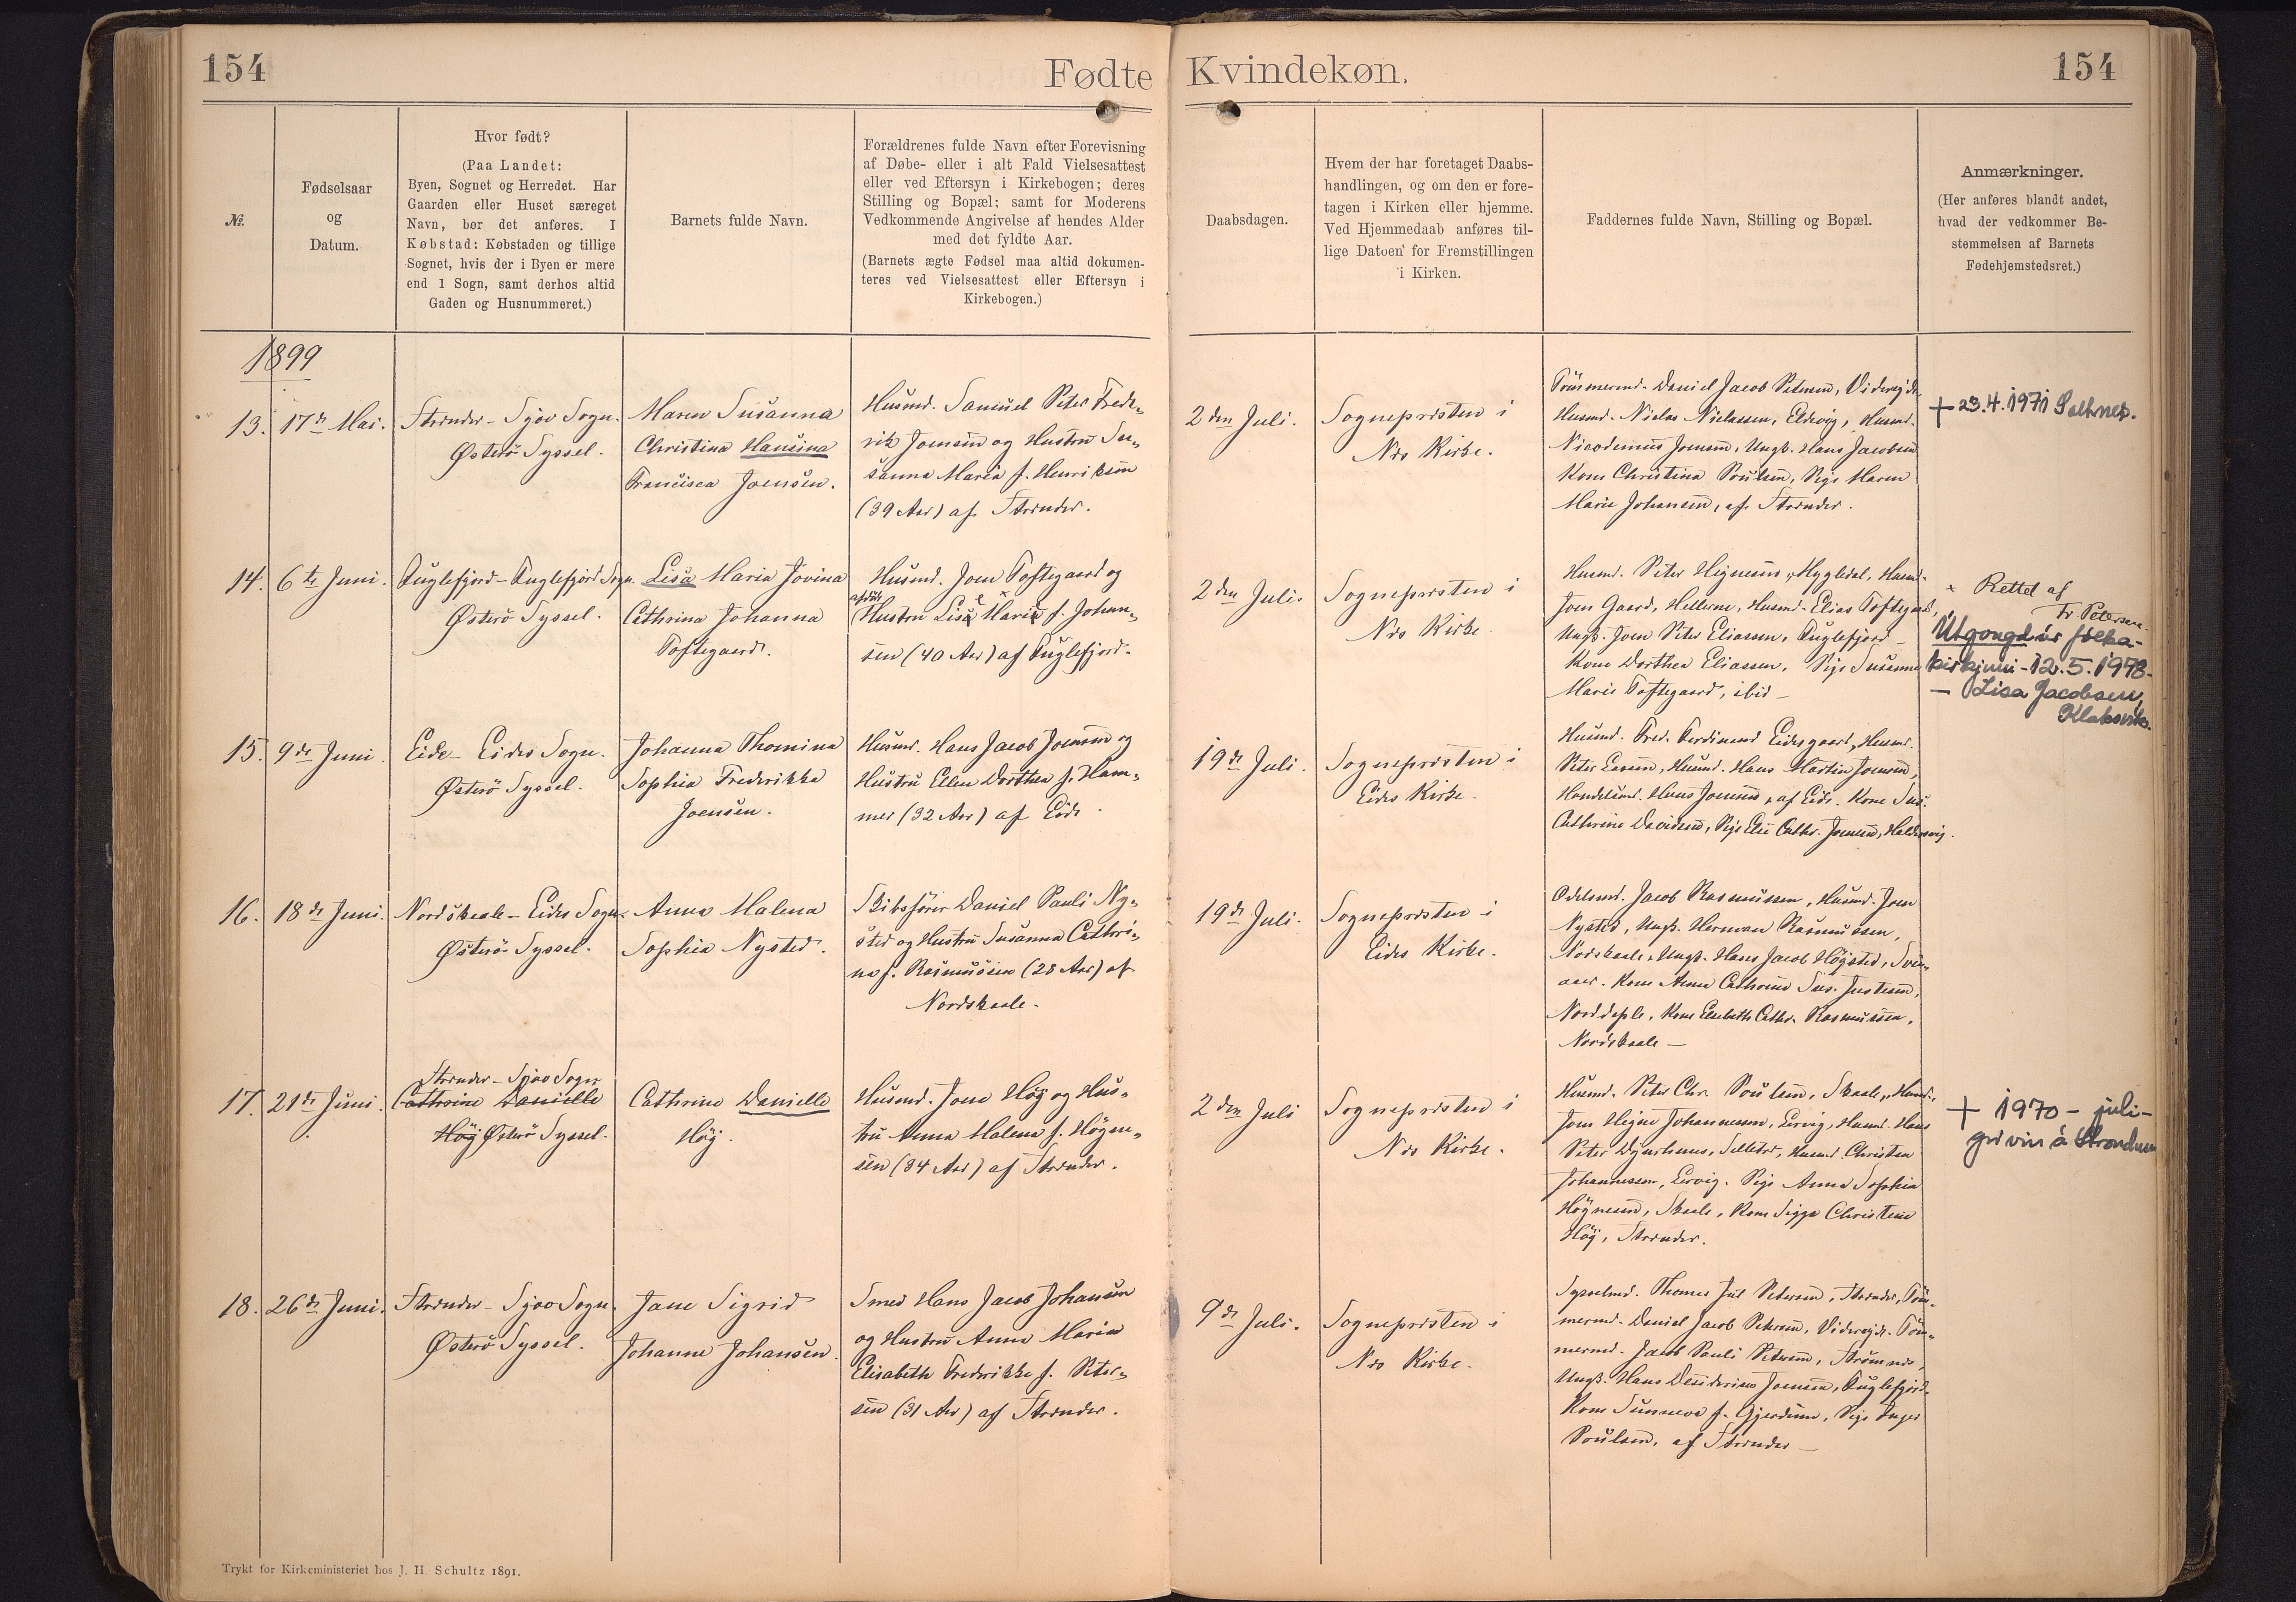 154
Fødte
Kvindekøn.
154
№.
Fødselsaar
og
Datum.
Hvor født?
(Paa Landet:
Byen, Sognet og Herredet. Har
Gaarden eller Huset særeget
Navn, bør det anføres. I
Købstad: Købstaden og tillige
Sognet, hvis der i Byen er mere
end 1 Sogn, samt derhos altid
Gaden og Husnummeret.)
Barnets fulde Navn.
Forældrenes fulde Navn efter Forevisning
af Døbe- eller i alt Fald Vielsesattest
eller ved Eftersyn i Kirkebogen; deres
Stilling og Bopæl; samt for Moderens
Vedkommende Angivelse af hendes Alder
med det fyldte Aar.
(Barnets ægte Fødsel maa altid dokumen-
teres ved Vielsesattest eller Eftersyn i
Kirkebogen.)
Daabsdagen.
Hvem der har foretaget Daabs-
handlingen, og om den er fore-
tagen i Kirken eller hjemme.
Ved Hjemmedaab anføres til-
lige Datoen for Fremstillingen
i Kirken.
Faddernes fulde Navn, Stilling og Bopæl.
Anmærkninger.
(Her anføres blandt andet,
hvad der vedkommer Be-
stemmelsen af Barnets
Fødehjemstedsret.)
1899
13.
17de Mai.
Strender - Sjov Sogn.
Østerö Syssel.
Maren Susanna
Christina Hansina
Francisca Joensen.
Husmd. Samuel Peter Frede-
rik Joensen og Hustru Su-
sanna Maria f. Henriksen
(39 Aar) af Strender.
2den Juli.
Sognepræsten i
Næs Kirke.
Tömmermd. Daniel Jacob Petersen, Videreide
Husmd. Niclas Niclassen, Eldevig, Husmd.
Nicodemus Joensen, Ungk. Hans Jacobsen
Kone Christina Poulsen, Pige Maren
Marie Johansen, af Strender.
+ 23.4.1971 Saltnes.
14.
6te Juni.
Fuglefjord - Fuglefjord Sogn.
Østerö Syssel.
Lisa Maria Jovina
Cathrina Johanna
Toftegaard.
Husmd. Joen Toftegaard og
afdöde
Hustru Lisa Maria f. Johan-
sen (40 Aar) af Fuglefjord.
2den Juli.
Sognepræsten i
Næs Kirke.
Husmd. Peter Hignesen, Mygledal, Husmd.
Joen Gaard, Hellerne, Husmd. Elias Toftegaard,
Ungk. Joen Peter Eliassen, Fuglefjord
Kone Dorthea Eliassen, Pige Susanna
Marie Toftegaard, ibid —
× Rettet af
Fr Petersen.
Útgongd úr fólka-
kirkjuni - 12.5.1978-
— Lisa Jacobsen,
Klaksvík.
15.
9de Juni.
Eide - Eides Sogn.
Østerö Syssel.
Johanna Thomina
Sophia Frederikka
Joensen.
Husmd. Hans Jacob Joensen og
Hustru Ellen Dorthea f. Ham-
mer (32 Aar) af Eide.
19de Juli.
Sognepræsten i
Eides Kirke.
Husmd. Fred. Ferdinand Eidesgaard, Husmd.
Peter Husmd. Hans Martin Joensen,
Handelsmd. Hans Joensen, af Eide. Kone Sus.
Cathrine Davidsen, Pige Else Cathr. Joensen, Haldersvig.
16.
18de Juni.
Nordskaale - Eides Sogn.
Østerö Syssel.
Anna Malena
Sophia Nysted.
Skibsförer Daniel Pauli Ny-
sted og Hustru Susanna Cathri-
na f. Rasmussen (28 Aar) af
Nordskaale.
19de Juli.
Sognepræsten i
Eides Kirke.
Odelsmd. Jacob Rasmussen, Husmd. Joen
Nysted, Ungk. Herman Rasmussen,
Nordskaale, Ungk. Hans Jacob Högsted, Svin-
aaer. Kone Anna Cathrine Sus. Justesen,
Norddeple, Kone Elsebeth Cathr. Rasmussen,
Nordskaale —
17.
21de Juni.
Strender - Sjov Sogn
Cathrine Danielle
Höj Østerö Syssel.
Cathrine Danielle
Höj.
Husmd. Joen Höj og Hus-
tru Anna Malena f. Högne-
sen (34 Aar) af Strender.
2den Juli
Sognepræsten i
Næs Kirke.
Husmd. Peter Chr. Poulsen, Skaale, Husmd.
Joen Heine Johannesen, Lervig, Husmd. Hans
Peter Djurhuus, Selletræ, Husmd. Christen
Johannessen, Lervig. Pige Anna Sophia
Högnesen, Skaale, Kone Sigga Christine
Höj, Strender.
+ 1970 - juli-
grivin á Strondum
18.
26de Juni.
Strender - Sjov Sogn.
Østerö Syssel.
Jane Sigrid
Johanne Johansen.
Smed Hans Jacob Johansen
og Hustru Anna Maria
Elisabeth Frederikke f. Peter-
sen (31 Aar) af Strender.
9de Juli.
Sognepræsten i
Næs Kirke.
Sysselmd. Thomas Jul Petersen, Strender, Töm-
mermd. Daniel Jacob Petersen, Videreide. Töm-
mermd. Jacob Pauli Petersen, Strömnæs,
Ungk. Hans Desiderius Joensen, Fuglefjord.
Kone Sunneva f. Gjerdum, Pige Inger
Poulsen, af Strender —
Trykt for Kirkeministeriet hos J. H. Schultz 1891.